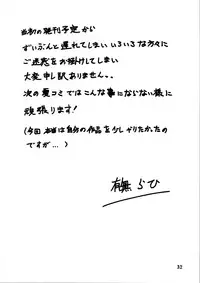 当初の発刊予定から
ずいぶんと遅れてしまい いろいろな方々に
ご迷惑をお掛けしてしまい
大変申し訳ありません。。
次の夏コミではこんな事にならない様に
頑張ります!
(今回 本当は自分の作品を少しやりたかったの
ですが…)
有無らひ
32